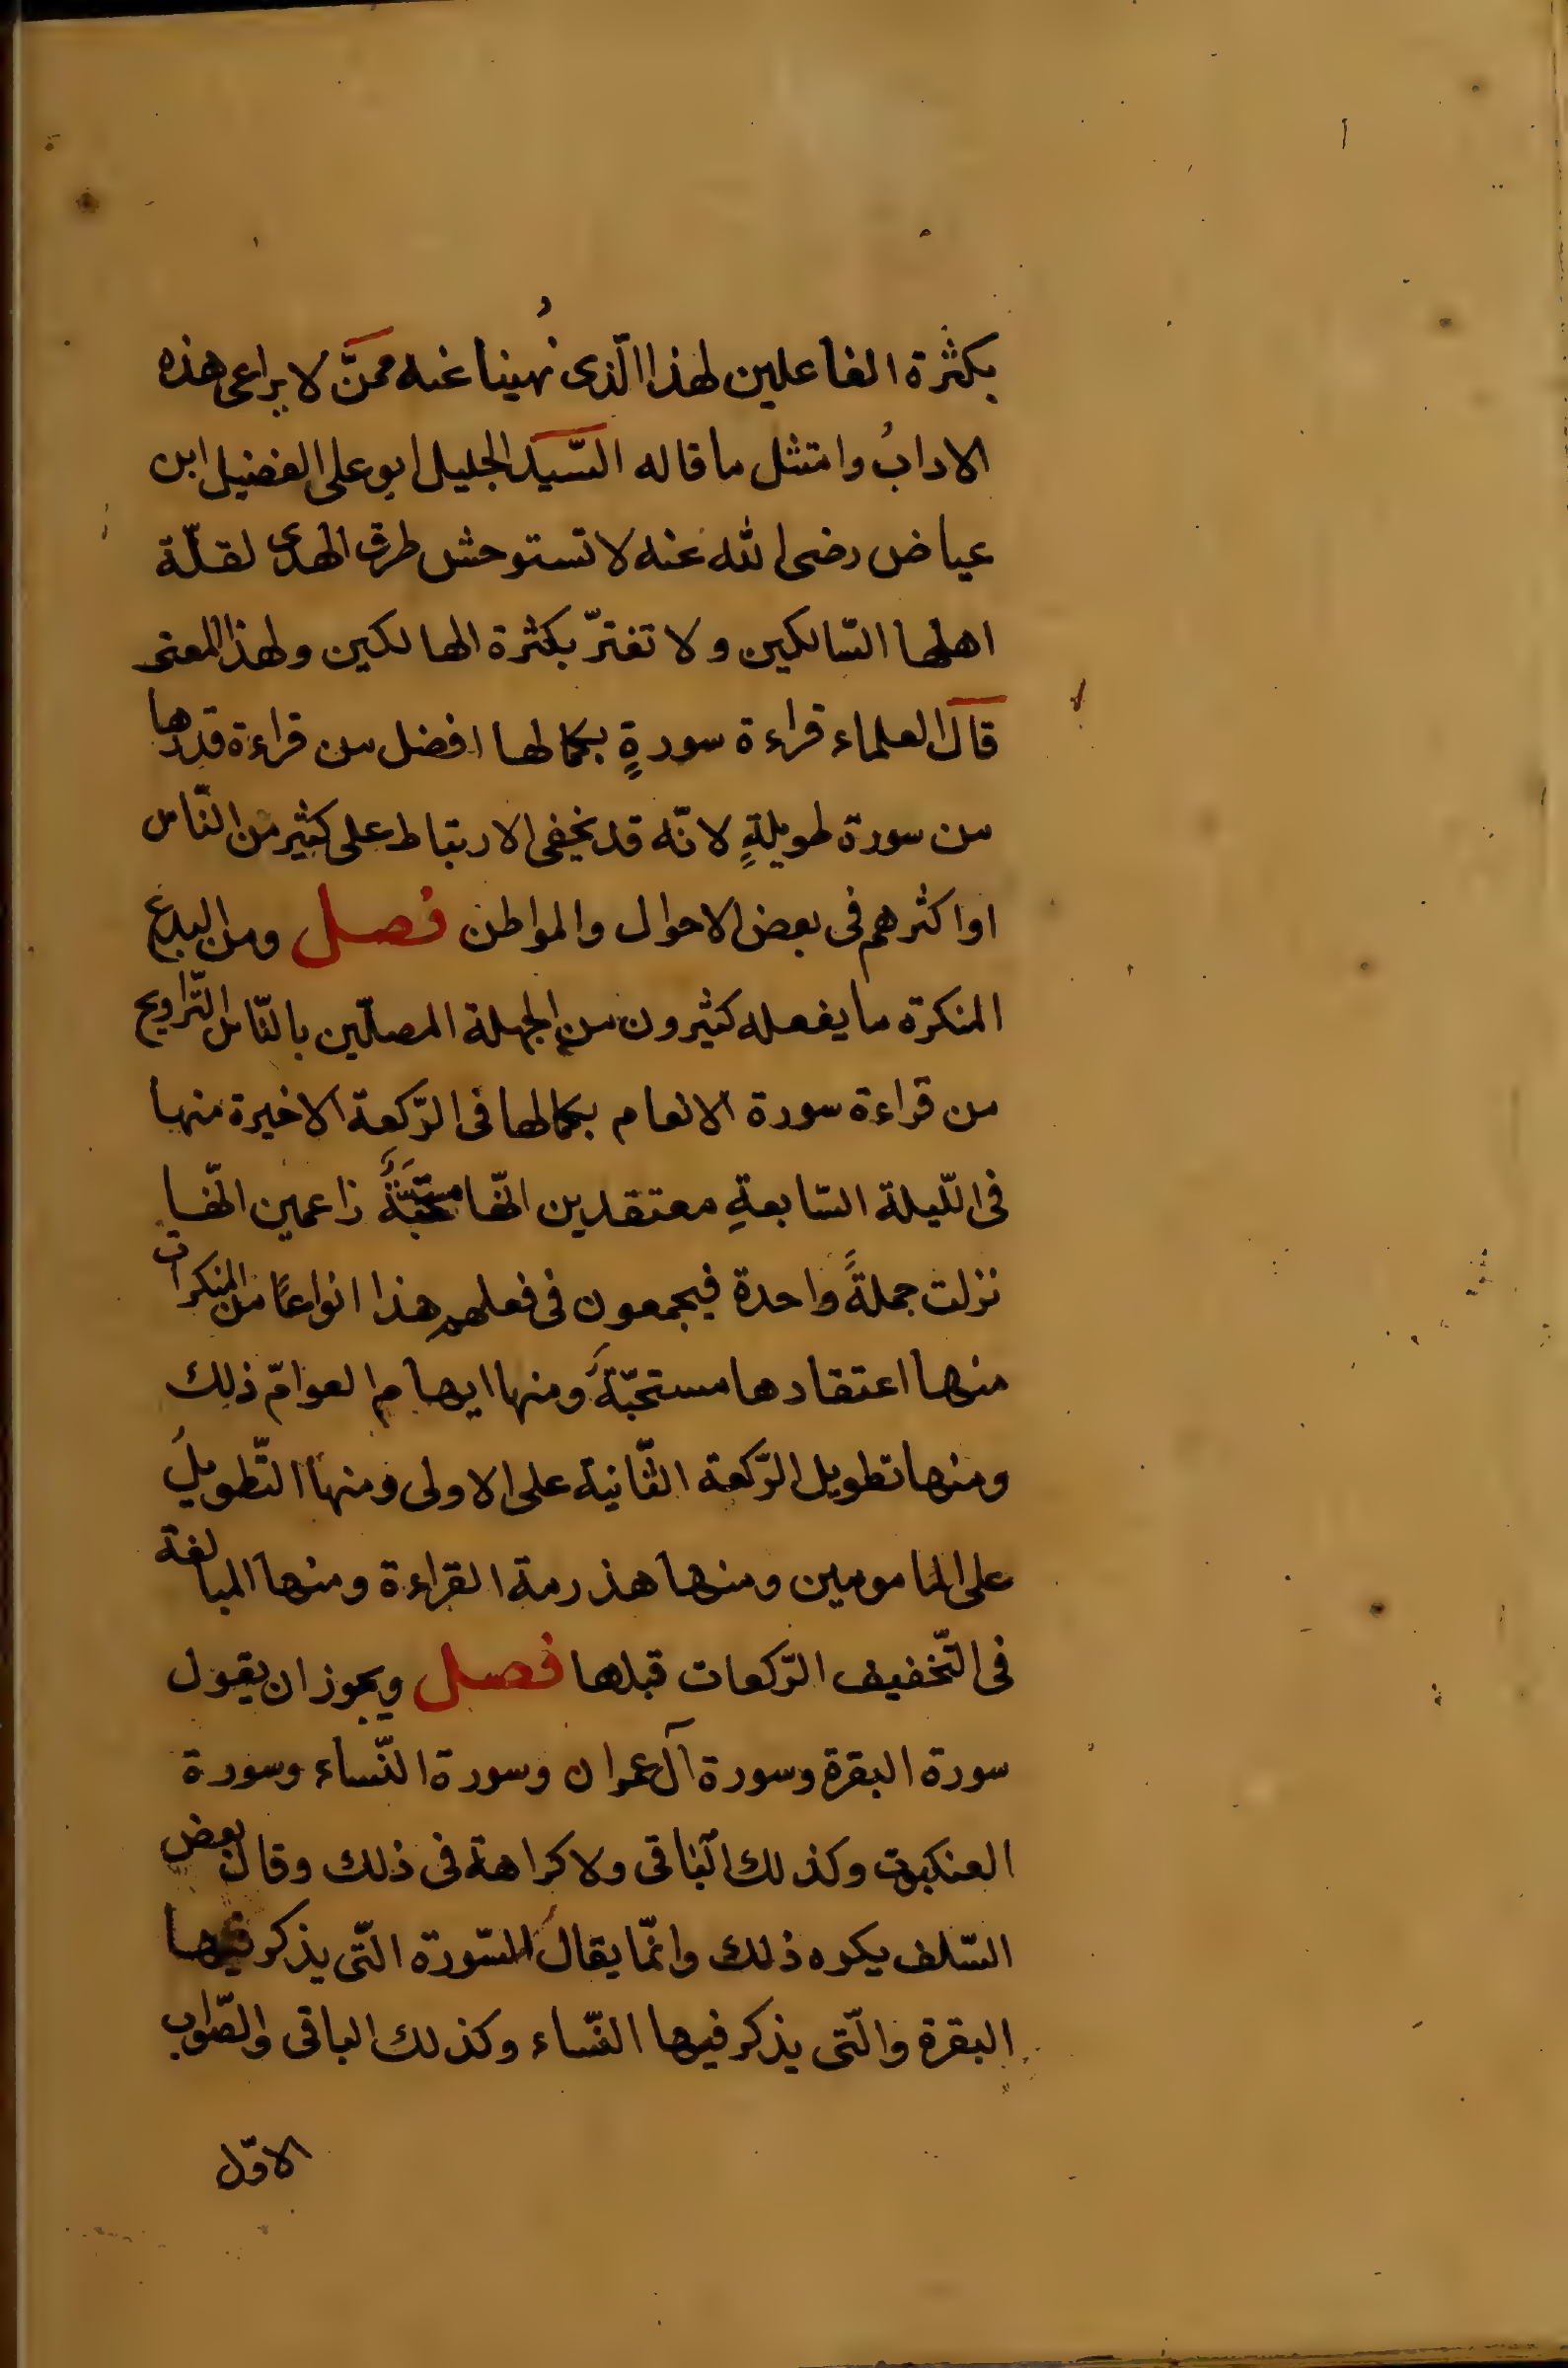 بكثرة الفاعلين لهذا الّذى نُهينا عنه ممنَّ لا يراعى هذه
الادابُ وامتثل ما قاله السّيد الجليل ابو على الفضيل ابن
عياض رضى الله عنه لا تستوحش طرق الهدى لقلّة
اهلها السّالكين ولا تغترّ بكثرة الهالكين ولهذا المعنى
قال العلماء قراءة سورةٍ بكمالها افضل من قراءة قدرها
من سورة طويلةٍ لانّه قد يخفى الارتباط على كثير من النّاس
او اكثرهم فى بعض الاحوال والمواطن فصل ومن البدع
المنكرة ما يفعله كثيرون من الجهلة المصلّين بالنّاس التّراويح
من قراءة سورة الانعام بكمالها فى الرّكعة الاخيرة منها
فى اللّيلة السّابعةِ معتقدين انّها مستحبّةً زاعمين انّها
نزلت جملةً واحدة فيجمعون فى فعلهم هذا انواعًا من المنكرات
منها اعتقادها مستحبّةً ومنها ايهام العوامّ ذلك
ومنها تطويل الرّكعة الثّانية على الاولى ومنها التّطويلُ
على المامومين ومنها هذرمة القراءة ومنها المبالغة
فى التّخفيف الرّكعات قبلها فصل ويجوز ان يقول
سورة البقرة وسورة آل عمران وسورة النّساء وسورة
العنكبوت وكذلك البّاقى ولا كراهة فى ذلك وقال بعض
السّلف يكره ذلك وانّما يقال السّورة الّتى يذكر فيها
البقرة والّتى يذكر فيها النّساء وكذلك الباقى والصّواب
الاوّل